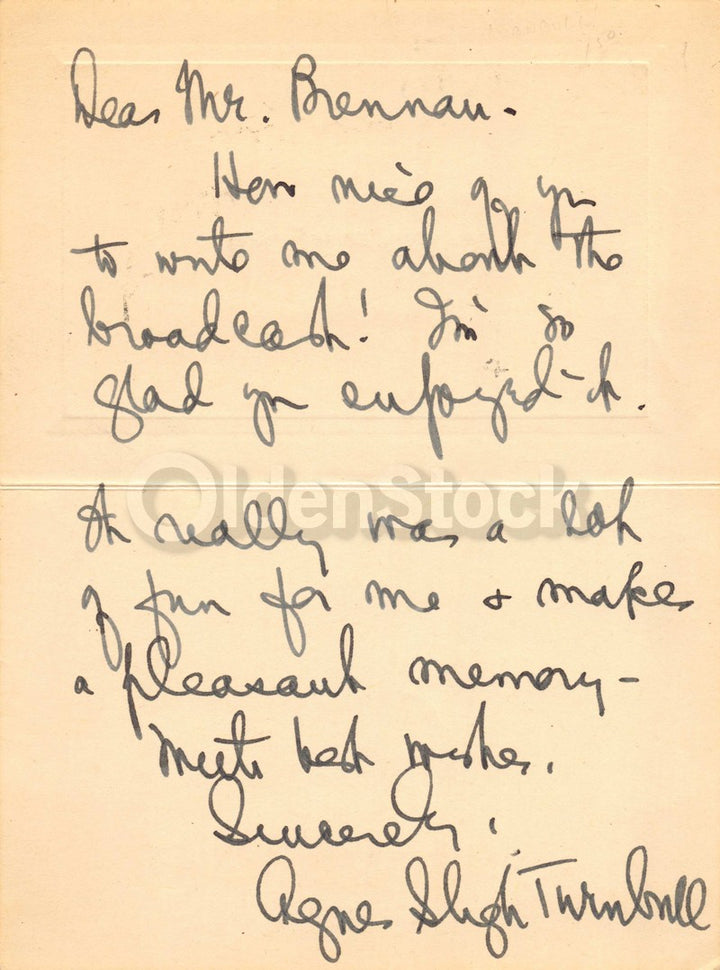 TURNBULL
Dear Mr. Brennan.
How nice of you
to write me about the
broadcast! I'm so
glad you enjoyed it.
OldenStock
It really was a lot
of fun for me & makes
a pleasant memory –
With best wishes.
Sincerely,
Agnes Sligh Turnbull